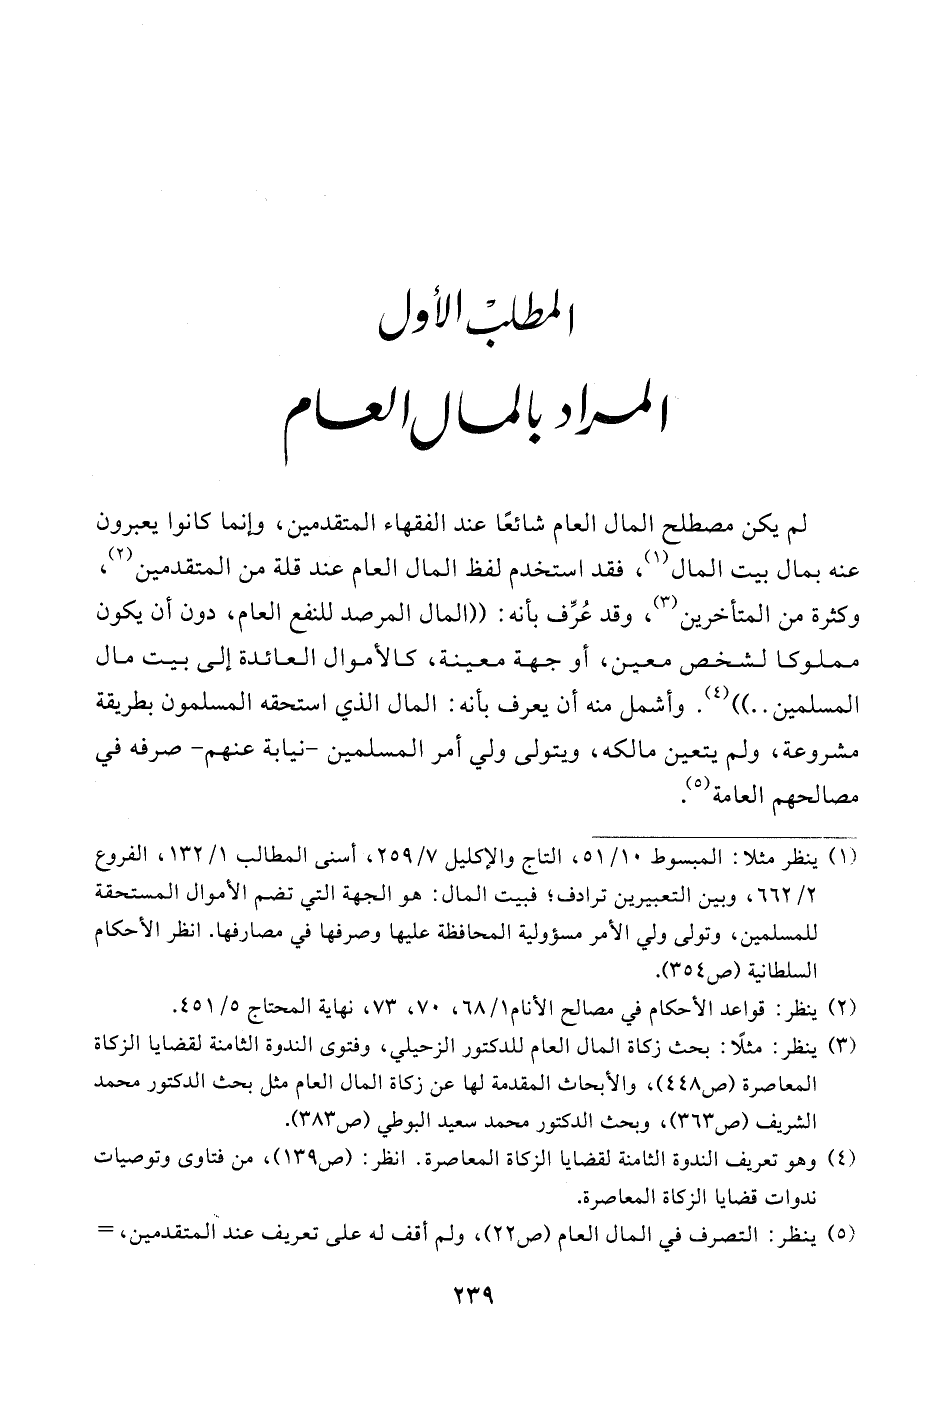 المطلب الأول
المراد بالمال العام
لم يكن مصطلح المال العام شائعًا عند الفقهاء المتقدمين، وإنما كانوا يعبرون
عنه بمال بيت المال(١)، فقد استخدم لفظ المال العام عند قلة من المتقدمين(٢)،
وكثرة من المتأخرين(٣)، وقد عُرِّف بأنه: ((المال المرصد للنفع العام، دون أن يكون
مملوكا لشخص معين، أو جهة معينة، كالأموال العائدة إلى بيت مال
المسلمين..))(٤). وأشمل منه أن يعرف بأنه: المال الذي استحقه المسلمون بطريقة
مشروعة، ولم يتعين مالكه، ويتولى ولي أمر المسلمين -نيابة عنهم- صرفه في
مصالحهم العامة(٥).
(١) ينظر مثلا: المبسوط ٥١/١٠، التاج والإكليل ٢٥٩/٧، أسنى المطالب ١٣٢/١، الفروع
٦٦٢/٢، وبين التعبيرين ترادف؛ فبيت المال: هو الجهة التي تضم الأموال المستحقة
للمسلمين، وتولى ولي الأمر مسؤولية المحافظة عليها وصرفها في مصارفها. انظر الأحكام
السلطانية (ص٣٥٤).
(٢) ينظر: قواعد الأحكام في مصالح الأنام٦٨/١، ٧٠، ٧٣، نهاية المحتاج ٤٥١/٥.
(٣) ينظر: مثلًا: بحث زكاة المال العام للدكتور الزحيلي، وفتوى الندوة الثامنة لقضايا الزكاة
المعاصرة (ص٤٤٨)، والأبحاث المقدمة لها عن زكاة المال العام مثل بحث الدكتور محمد
الشريف (ص٣٦٣)، وبحث الدكتور محمد سعيد البوطي (ص٣٨٣).
(٤) وهو تعريف الندوة الثامنة لقضايا الزكاة المعاصرة. انظر: (ص١٣٩)، من فتاوى وتوصيات
ندوات قضايا الزكاة المعاصرة.
(٥) ينظر: التصرف في المال العام (ص٢٢)، ولم أقف له على تعريف عند المتقدمين، =
٢٣٩